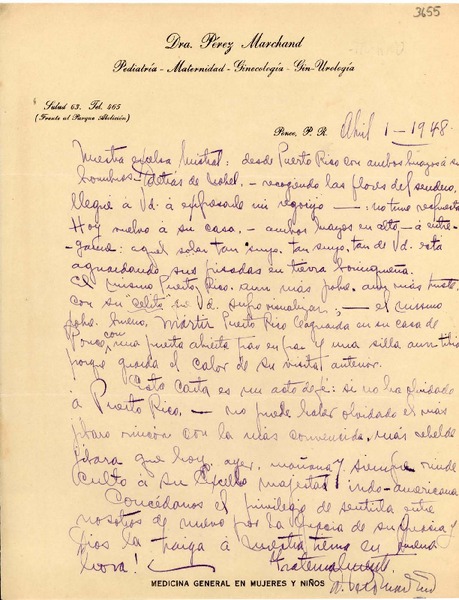 3655
Dra. Pérez Marchand
Pediatría - Maternidad - Ginecología - Gin-Urología
Salud 63. Tel. 865
(Frente al Parque Abolición)
Ponce, P. R. Abril 1 - 1948
Nuestra excelsa Mistral: desde Puerto Rico con ambos brazos á su
hombros - detrás de Isabel, - recogiendo las flores del sendero,
llegué á Vd. á expresarle mi regocijo - : no tuve respuesta
Hoy vuelvo á su casa, - ambos en alto, - á entre-
: aquel solar tan suyo, tan suyo, tan de Vd. está
aguardando sus pisadas en tierra borinqueña.
El mismo Puerto Rico, aun más pobre, aun más triste,
con su Vd. supo visualizar, - el mismo
pobre, bueno, Mártir Puerto Rico la aguarda en su casa de
Ponce, con una puerta abierta par en par y una silla aun tibia
porque guarda el calor de su visita anterior.
Esta carta es un acto de fé: si no ha olvidado
á Puerto Rico, - no puede haber olvidado el más
jíbaro rincón con la más convencida, más rebelde
jíbara que hoy, ayer, mañana y siempre rinde
culto á su majestad indo-americana
Concédanos el privilegio de sentirla entre
nosotros de nuevo por la gracia de su y
Dios la traiga á nuestra tierra en buena
hora!
Fraternalmente,
MEDICINA GENERAL EN MUJERES Y NIÑOS